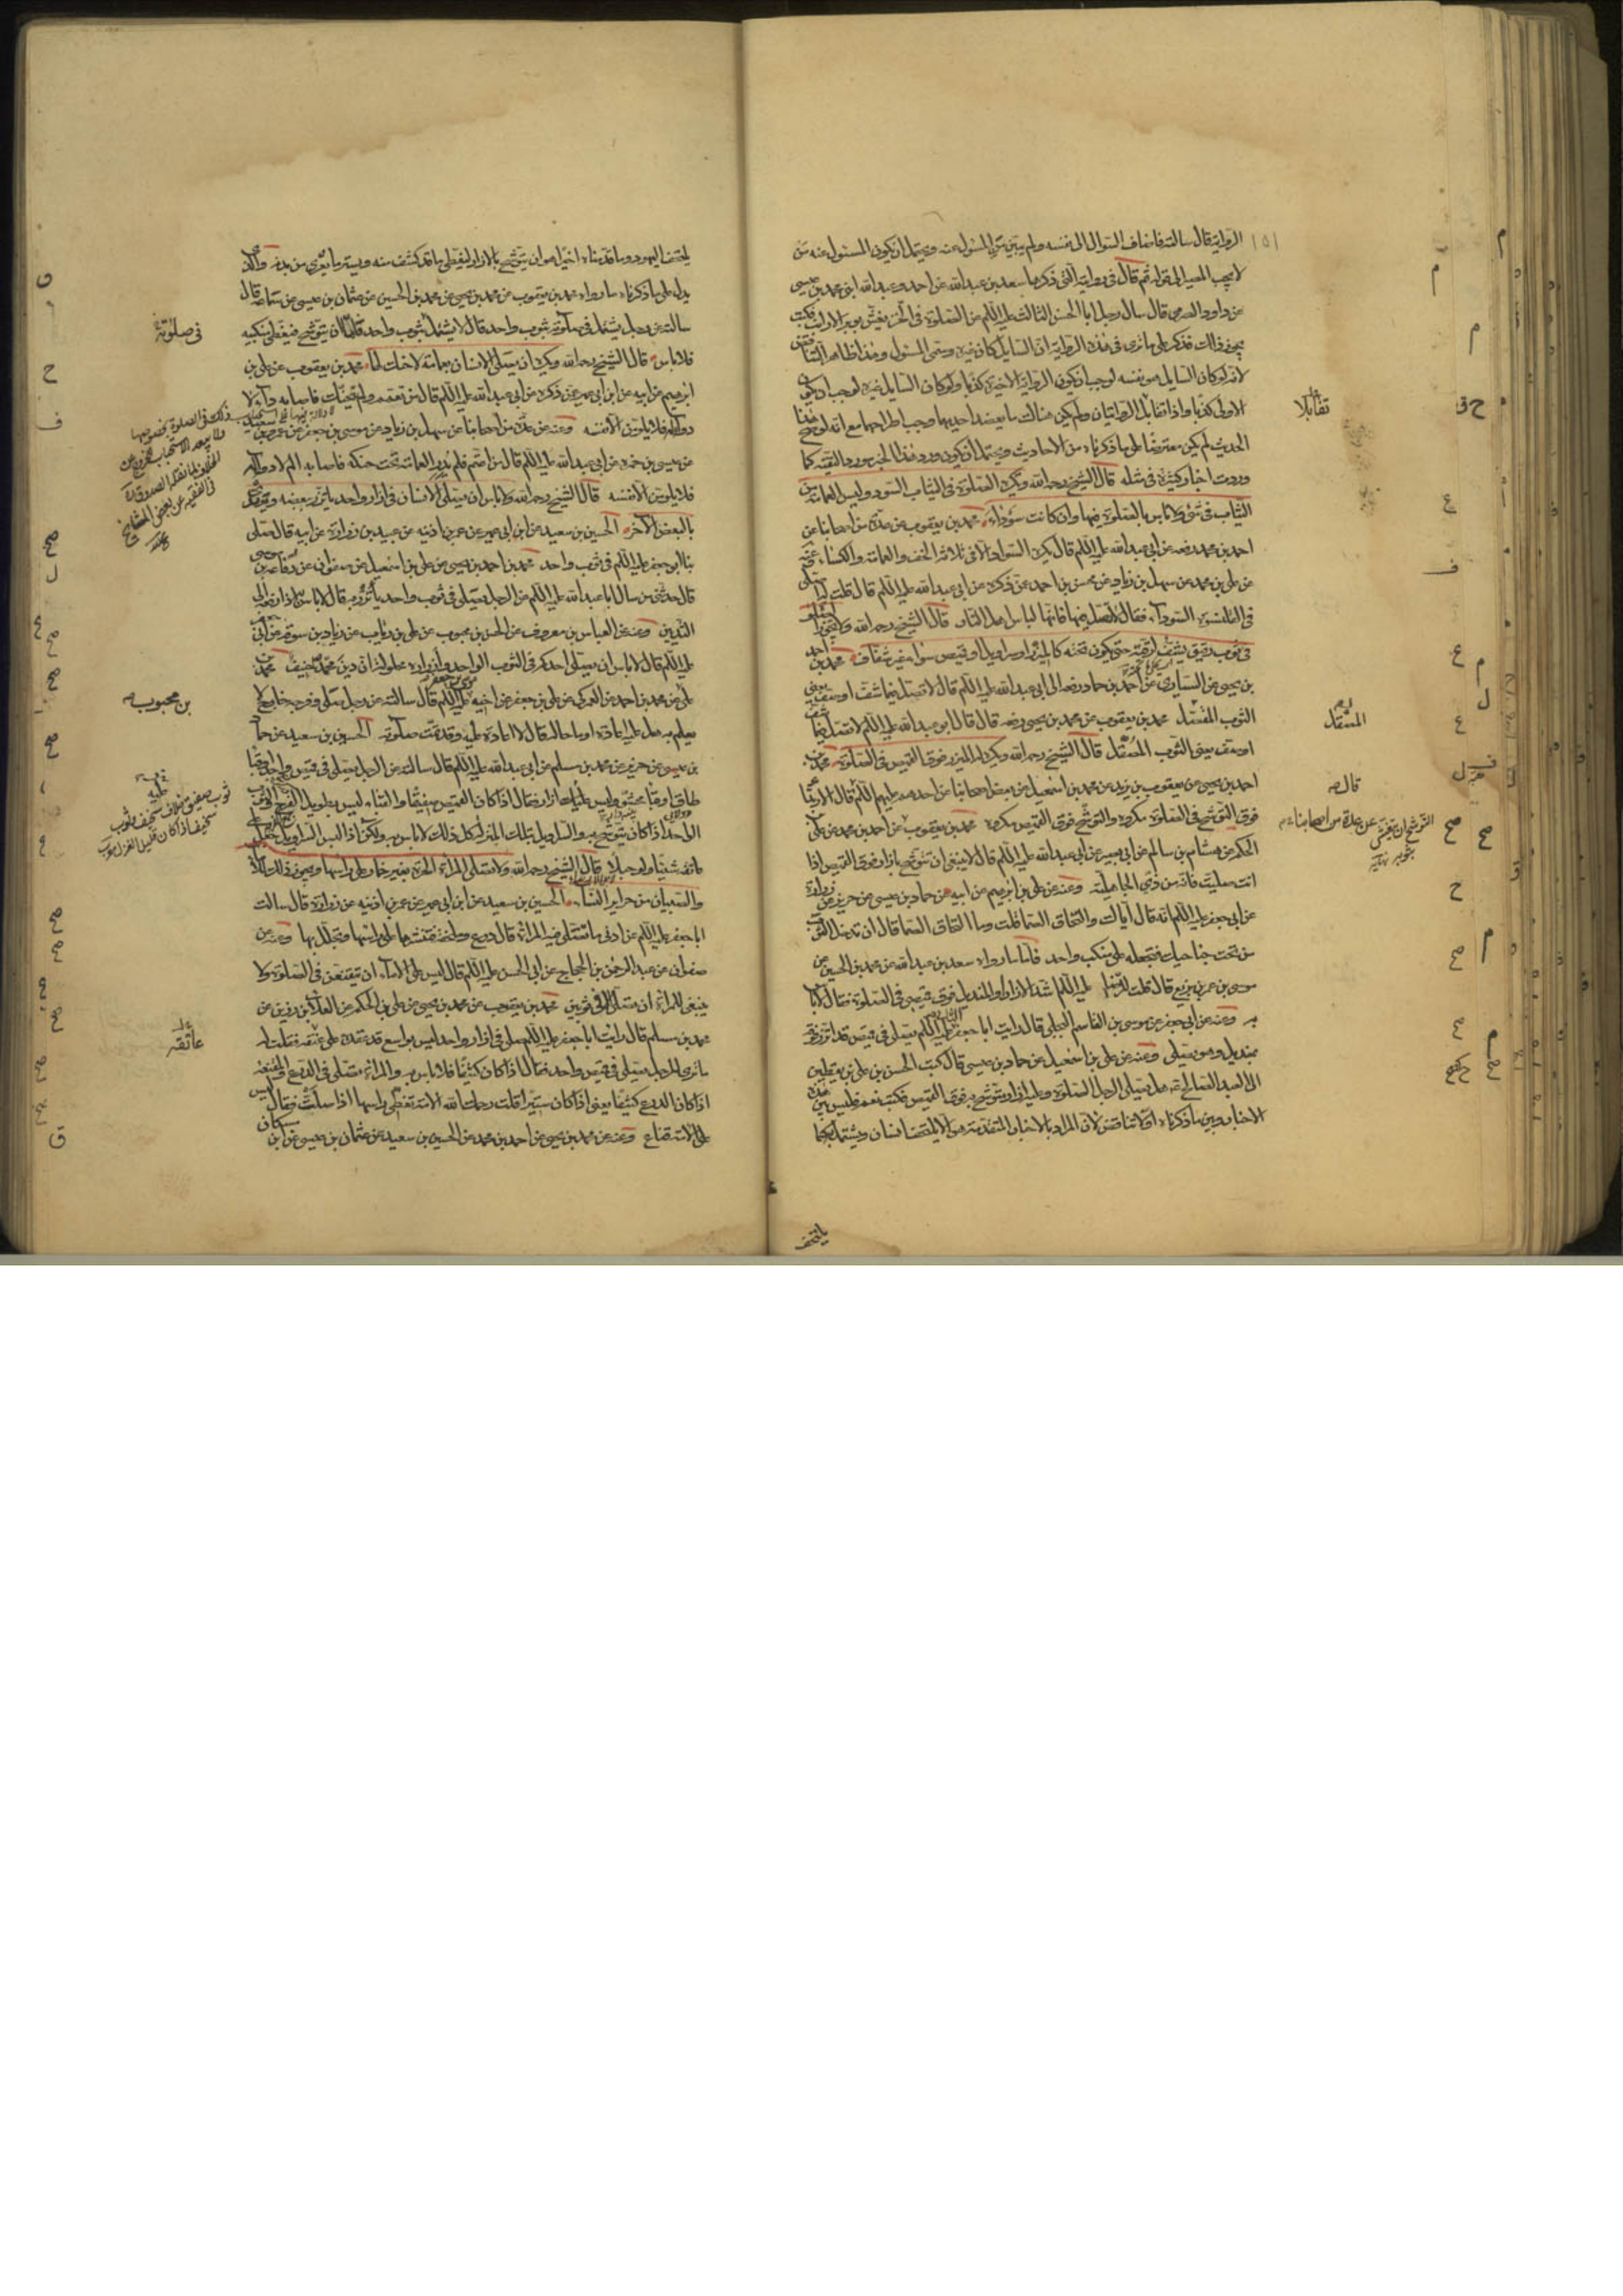 الرواية قال سالته فاضاف السوال الى نفسه ولم يبين من المسئول عنه ويحتمل ان يكون المسئول عنه من
لا يجب المصير الى قوله ثم قال فى رواية التى ذكرها سعد بن عبد الله عن احمد وعبد الله ابنى محمد بن عيسى
عن داود الصرمى قال سال رجل ابا الحسن الثالث عليه السلام عن الصلوة فى الخز يغش بوبر الارانب فكتب
يجوز ذلك فذكر على ما ترى فى هذه الرواية ان السايل كان غيره وسمى المسئول وهذا ظاهر التناقض
لانه لو كان السايل هو نفسه لوجب ان يكون الرواية الاخيرة كذبا ولو كان السايل غيره لوجب ان يكون
الاولى كذبا واذا تقابل الروايتان ولم يكن هناك ما يعضد احديهما وجب اطراحهما مع انه لو صح هذا
الحديث لم يكن معترضا على ما ذكرناه من الاحاديث ويحتمل ان يكون ورود هذا الخبر مورد التقية كما
وردت اخبار كثيرة فى مثله قال الشيخ رحمه الله وتكره الصلوة فى الثياب السود وليس العمامة من
الثياب فى شئ ولا باس بالصلوة فيها وان كانت سوداء محمد بن يعقوب عن عدة من اصحابنا عن
احمد بن محمد رفعه عن ابى عبد الله عليه السلام قال يكره السواد الا فى ثلاثة الخف والعمامة والكساء عنه
عن على بن محمد عن سهل بن زياد عن محسن بن احمد عمن ذكره عن ابى عبد الله عليه السلام قال قلت له اصلى
فى القلنسوة السوداء فقال لا تصل فيها فانها لباس اهل النار قال الشيخ رحمه الله ولا تجوز الصلوة
فى ثوب رقيق يشف لرقته حتى يكون تحته كالمئزر او سراويل او قميص سواه غير شفاف محمد بن احمد
بن يحيى عن السيارى عن احمد بن حماد رفعه الى ابى عبد الله عليه السلام قال لا تصل فيما شف او صف يعنى
الثوب المصقل محمد بن يعقوب عن محمد بن يحيى رفعه قال قال ابو عبد الله عليه السلام لا تصل فيما شف
او صف يعنى الثوب المصقل قال الشيخ رحمه الله ويكره المئزر فوق القميص فى الصلوة محمد بن
احمد بن يحيى عن يعقوب بن يزيد عن محمد بن اسمعيل عن بعض اصحابنا عن احدهم عليهم السلام قال الارتدا
فوق التوشح فى الصلوة مكروه والتوشح فوق القميص مكروه محمد بن يعقوب عن احمد بن محمد عن على
الحكم عن هشام بن سالم عن ابى بصير عن ابى عبد الله عليه السلام قال لا ينبغى ان تتوشح بازار فوق القميص اذا
انت صليت فانه من زى الجاهلية وعنه عن على بن ابرهيم عن ابيه عن حماد بن عيسى عن حريز عن زرارة
عن ابى جعفر عليه السلام انه قال اياك والتحاف الصما قلت وما التحاف الصما قال ان تدخل الثوب
من تحت جناحيك فتجعله على منكب واحد فاما ما رواه سعد بن عبد الله عن محمد بن الحسين عن
موسى بن عمر بن بزيع قال قلت للرضا عليه السلام اشد الازار او المنديل فوق قميصى فى الصلوة فقال لا باس
به وعنه عن ابى جعفر عن موسى بن القاسم البجلى قال رايت ابا جعفر الثانى عليه السلام يصلى فى قميص قد اتزر فوقه
بمنديل وهو يصلى وعنه عن على بن اسمعيل عن حماد بن عيسى قال كتب الحسن بن على بن يقطين
الى العبد الصالح عم هل يصلى الرجل الصلوة وعليه ازار متوشح به فوق القميص فكتب نعم فليس بين هذه
الاخبار وبين ما ذكرناه اولا تناقض لان المراد بالاخبار المتقدمة هو الا يلتحف الانسان ويشتمل كما
يلتحف
تقابلا
المصقل
قال
عن عدة من اصحابناء م
يلتحف اليهود وما قدمناه اخيرا هو ان يتوشح بالازار ليغطى ما قد كشف منه ويستر ما تعرى من بدنه والذى
يدل على ما ذكرناه ما رواه محمد بن يعقوب عن محمد بن يحيى عن محمد بن الحسين عن عثمان بن عيسى عن سماعة قال
سالته عن رجل يشتمل فى صلوته بثوب واحد قال لا يشتمل بثوب واحد فاما ان يتوشح فيغطى منكبيه
فلا باس قال الشيخ رحمه الله ويكره ان يصلى الانسان بعمامة لا حنك لها محمد بن يعقوب عن على بن
ابرهيم عن ابيه عن ابن ابى عمير عمن ذكره عن ابى عبد الله عليه السلام قال من تعمم ولم يتحنك فاصابه داء لا
دواء له فلا يلومن الا نفسه وعنه عن عدة من اصحابنا عن سهل بن زياد عن موسى بن جعفر عن عمرو بن سعيد
عن عيسى بن حمزة عن ابى عبد الله عليه السلام قال من اعتم فلم يدر العمامة تحت حنكه فاصابه الم لا دواء له
فلا يلومن الا نفسه قال الشيخ رحمه الله ولا باس ان يصلى الانسان فى ازار واحد ياتزر ببعضه ويرتدى
بالبعض الاخر الحسين بن سعيد عن ابن ابى عمير عن عمر بن اذينه عن عبيد بن زرارة عن ابيه قال صلى
بنا ابو جعفر عليه السلام فى ثوب واحد محمد بن احمد بن يحيى عن على بن اسمعيل عن صفوان عن رفاعة بن موسى
قال حدثنى من سال ابا عبد الله عليه السلام عن الرجل يصلى فى ثوب واحد ياتزر به قال لا باس به اذا رفعه الى
الثديين وعنه عن العباس بن معروف عن الحسن بن محبوب عن على بن رئاب عن زياد بن سوقه عن ابى جعفر
عليه السلام قال لا باس ان يصلى احدكم فى الثوب الواحد وازراره محلولة ان دين محمد حنيف محمد بن
على بن محمد بن احمد عن العمركى عن على بن جعفر عن اخيه موسى بن جعفر عليه السلام قال سالته عن رجل صلى وفرجه خارج لا
يعلم به هل عليه اعادة او ما حاله قال لا اعادة عليه وقد تمت صلوته الحسين بن سعيد عن حماد
بن عيسى عن حريز عن محمد بن مسلم عن ابى عبد الله عليه السلام قال سالته عن الرجل يصلى فى قميص واحد او قبا
طاق او قبا محشو وليس عليه ازار فقال اذا كان القميص صفيقا والقباء ليس بطويل الفرج والثوب
الواحد اذا كان يتوشح به والسراويل بتلك المنزلة كل ذلك لا باس به ولكن اذا لبس السراويل جعل على
عاتقه شيئا ولو حبلا قال الشيخ رحمه الله ولا تصلى المراة الحرة بغير خمار على راسها ويجوز ذلك للاماء
والصبيان من حراير النساء الحسين بن سعيد عن ابن ابى عمير عن عمر بن اذينه عن زرارة قال سالت
ابا جعفر عليه السلام عن ادنى ما تصلى فيه المراة قال درع وملحفة فتنشرها على راسها وتجلل بها وعنه عن
صفوان عن عبد الرحمن بن الحجاج عن ابى الحسن عليه السلام قال ليس على الاماء ان يتقنعن فى الصلوة ولا
ينبغى للمراة ان تصلى الا فى ثوبين محمد بن يعقوب عن محمد بن يحيى عن على بن الحكم عن العلا بن رزين عن
محمد بن مسلم قال رايت ابا جعفر عليه السلام صلى فى ازار واحد ليس بواسع قد عقده على عنقه فقلت له
ما ترى للرجل يصلى فى قميص واحد فقال اذا كان كثيفا فلا باس به والمراة تصلى فى الدرع والمقنعة
اذا كان الدرع كثيفا يعنى اذا كان ستيرا قلت رحمك الله الامة تغطى راسها اذا صلت فقال ليس
على الامة قناع وعنه عن محمد بن يحيى عن احمد بن محمد عن الحسين بن سعيد عن عثمان بن عيسى عن ابن
مسكان
فى صلوته
بن محبوب
عاتقه